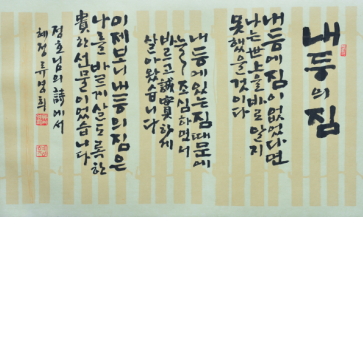 내 등의 짐
내 등에 짐이 없었다면
나는 世上을 바로 알지
못했을 것이다
내 등에 있는 짐 때문에
늘 조심하면서
바르고 誠實하게
살아왔습니다
이제 보니 내 등의 짐은
나를 바르게 살도록 한
貴한 선물이었습니다
정호님의 詩에서
혜정 류영희